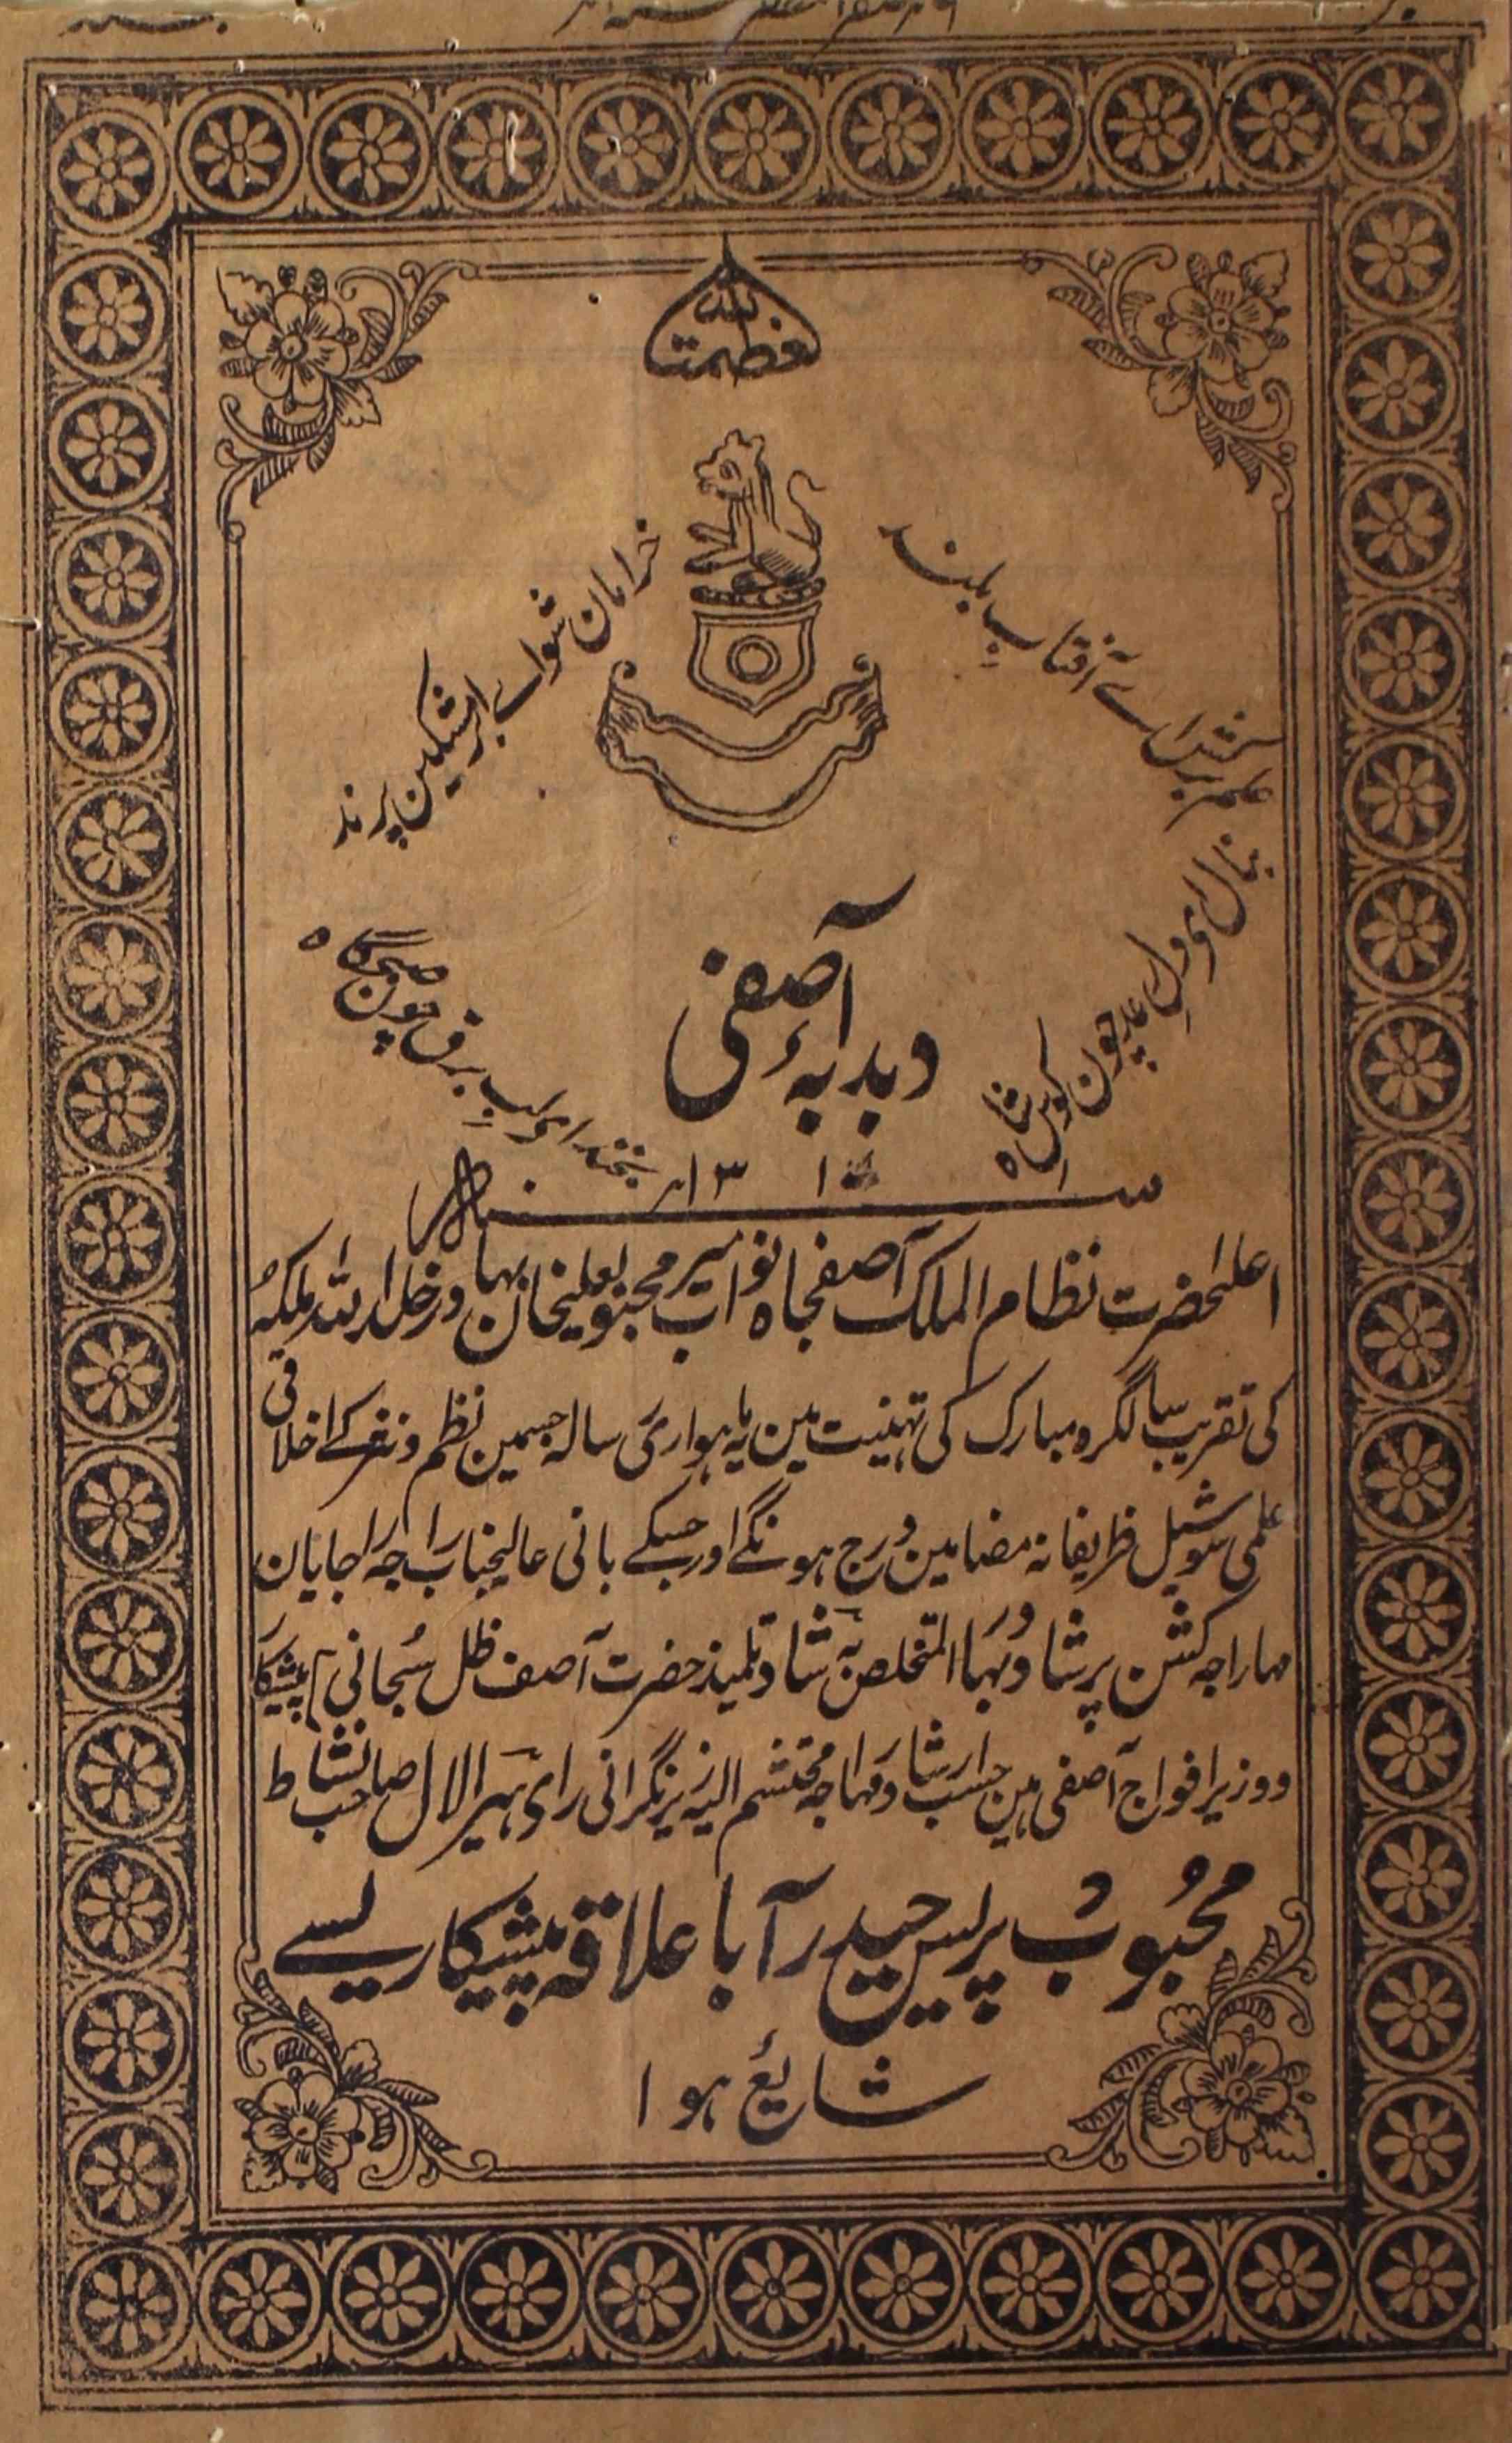 العظمۃ للہ
علم برکش اے آفتاب بلند
خرامان شو اے ابر مشکین پرند
بنال ای دل رعد چون کوس شاہ
بخند ای لب برق چون صبحگاہ
دبدبۂ آصفی
سنہ ۱۳۱۵ھ
اعلیٰحضرت نظام الملک آصفجاہ نواب میر محبوبعلیخان بہادر خلد اللہ ملکہٗ
کی تقریب سالگرہ مبارک کی تہنیت مین یہ ماہواری رسالہ جسمین نظم و نثر کے اخلاقی
علمی سوشیل ظریفانہ مضامین درج ہونگے اور جسکے بانی عالیجناب راجہ راجایان
مہاراجہ کشن پرشاد بہادر المتخلص بہ شاد تلمیذ حضرت آصف ظل سبحانی پیشکار
و وزیر افواج آصفی ہین حسب ارشاد مہاراجہ محتشم الیہ زیر نگرانی رای ہیرا لال صاحب نشاط
محبوب پریس حیدرآباد علاقہ پیشکاری سے
شایع ہوا